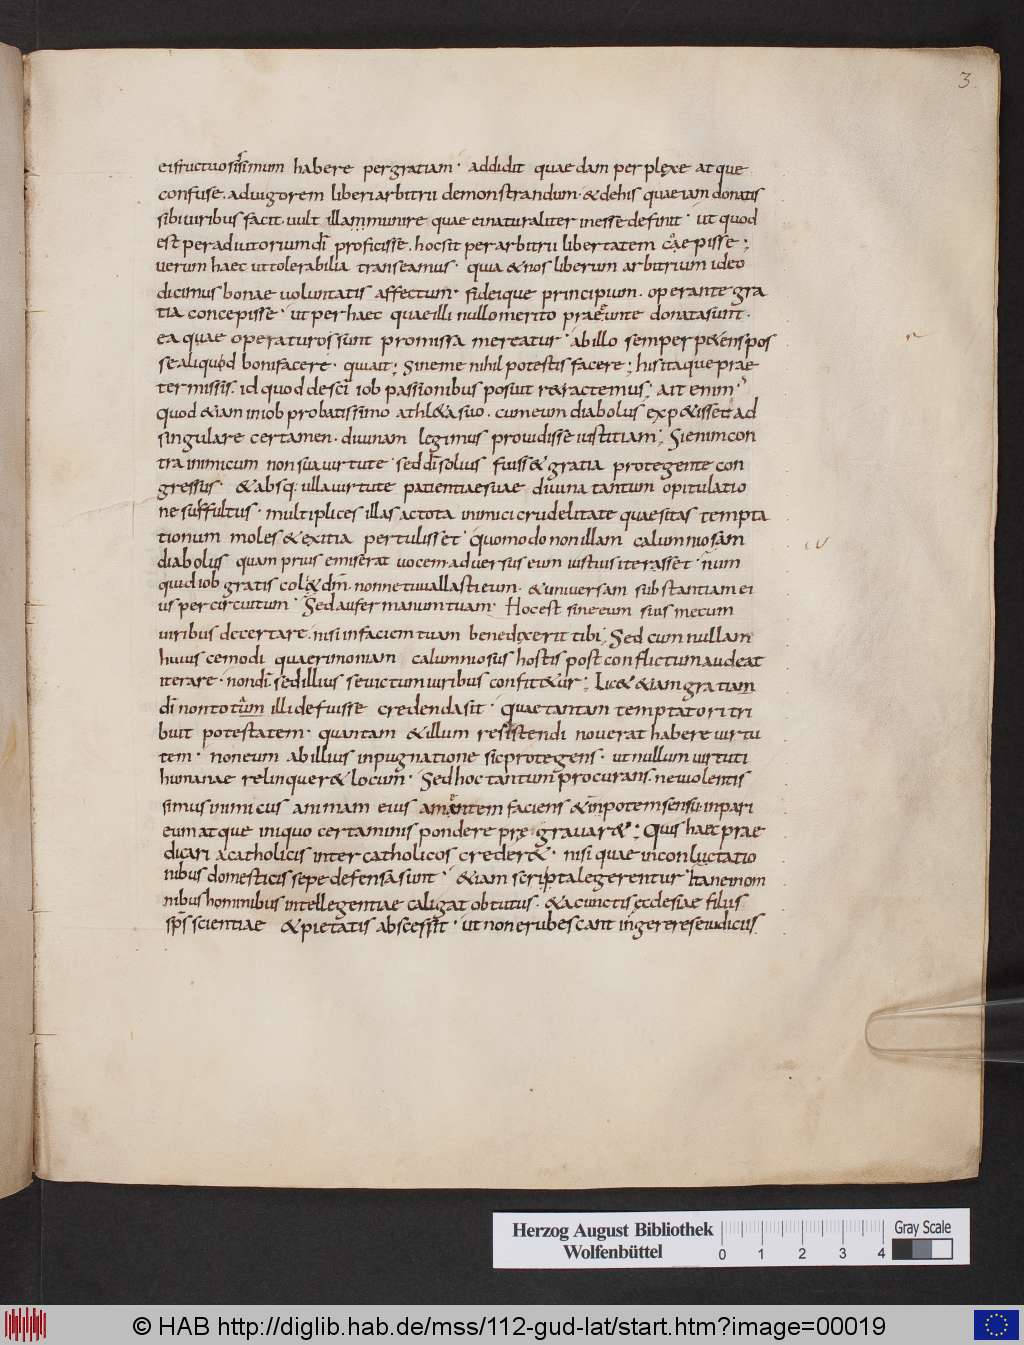 3
ei fructuosissimum habere per gratiam · addidit quaedam perplexe atque
confuse · ad vigorem liberi arbitrii demonstrandum · & de his quae iam donatis
sibi uiribus facit · uult illam munire quae ei naturaliter inesse definit · ut quod
est per adiutorium dī proficisse · hoc sit per arbitrii libertatem coepisse ;
uerum haec ut tolerabilia transeamus · quia & nos liberum arbitrium ideo
dicimus bonae uoluntatis affectum · fideique principium · operante gra
tia concepisse · ut per haec quae illi nullo merito praeeunte donata sunt ·
ea quae operaturos sunt promissa mereatur · ab illo semper p&ens pos
se aliquod boni facere · qui ait ; sine me nihil potestis facere ; his itaque prae
termissis · id quod de scī iob passionibus posuit r&ractemus ; ait enim ·
quod &iam in iob probatissimo athl&a suo · cum eum diabolus exp&isset ad
singulare certamen · diuinam legimus prouidisse iustitiam ; Si enim con
tra inimicum non sua uirtute sed dī solius fuiss& gratia protegente con
gressus · & absq; ulla uirtute patientiae suae diuina tantum opitulatio
ne suffultus · multiplices illas ac tota inimici crudelitate quaesitas tempta
tionum moles & exitia pertulisset · quomodo non illam calumniosam
diabolus quam prius emiserat uocem aduersus eum iustius iterasset · num
quid iob gratis col& dm̄ · nonne tu uallasti eum · & uniuersam substantiam ei
us per circuitum · Sed aufer manum tuam · Hoc est sine eum suis mecum
uiribus decertare · nisi in faciem tuam benedixerit tibi ; Sed cum nullam
huius cemodi quaerimoniam calumniosus hostis post conflictum audeat
iterare · non dī sed illius se uictum uiribus confit&ur ; Lic& &iam gratiam
dī non totum illi defuisse credenda sit · quae tantam temptatori tri
buit potestatem · quantam & illum resistendi nouerat habere uirtu
tem · non eum ab illius inpugnatione sic protegens · ut nullum uirtuti
humanae relinquer& locum · Sed hoc tantum procurans · ne uiolentis
simus inimicus animam eius amentem faciens & inpotem sensu · inpari
eum atque iniquo certaminis pondere pręgrauar& ; Quis haec prae
dicari a catholicis inter catholicos creder& · nisi quae in conluctatio
nibus domesticis sepe defensa sunt · &iam scripta legerentur · Itane in om
nibus hominibus intellegentiae caligat obtutus · & a cunctis ecclesiae filiis
sps̄ scientiae & pietatis abscessit · ut non erubescant ingerere se iudiciis
Herzog August Bibliothek
Wolfenbüttel
0 1 2 3 4
Gray Scale
© HAB http://diglib.hab.de/mss/112-gud-lat/start.htm?image=00019